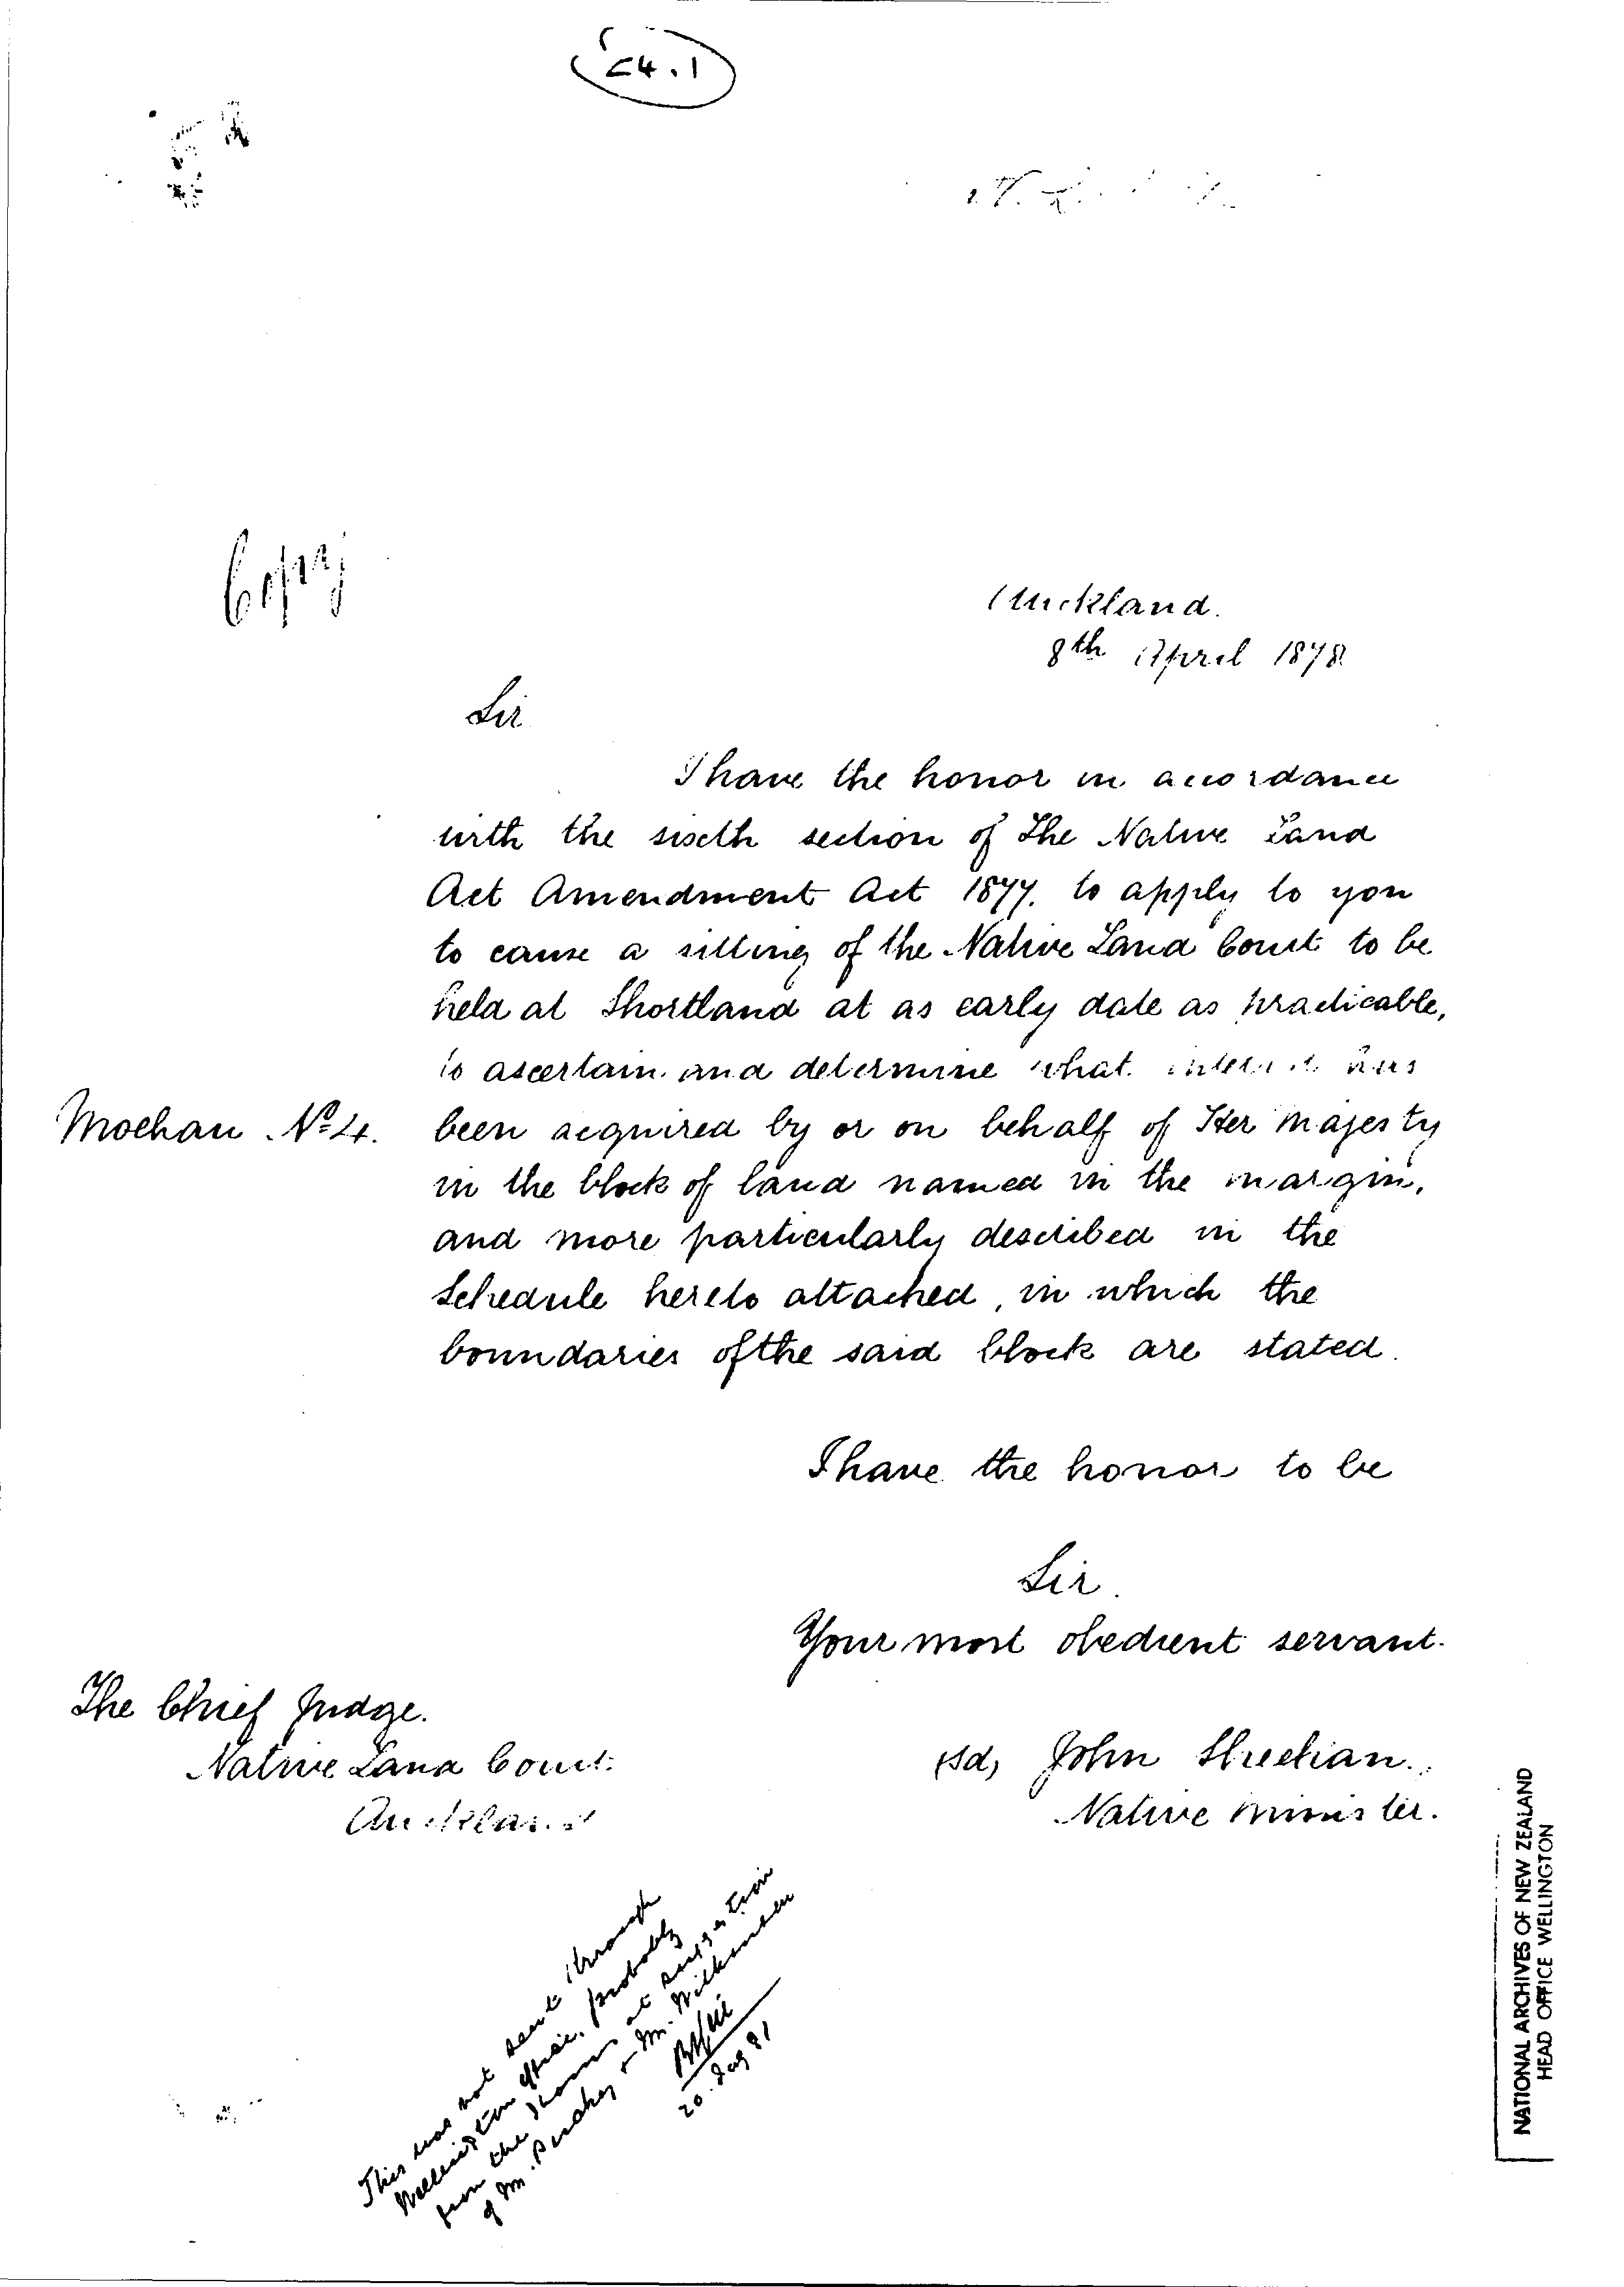 24.1
Copy
Auckland.
8th April 1878.
Sir
I have the honor in accordance
with the sixth section of The Native Land
Act Amendment Act 1877. to apply to you
to cause a sitting of the Native Land Court to be
held at Shortland at as early date as practicable,
to ascertain and determine what interest has
Moehau No 4. been acquired by or on behalf of Her Majesty
in the block of land named in the margin,
and more particularly described in the
Schedule hereto attached, in which the
boundaries of the said block are stated.
I have the honor to be
Sir.
Your most obedient servant.
The Chief Judge.
Native Land Court.
Auckland
(Sd) John Sheehan.
Native Minister.
This was not sent through
Wellington office, probably
from the Thames at suggestion
of Mr. Puckey or Mr. Wilkinson
20. 81
NATIONAL ARCHIVES OF NEW ZEALAND
HEAD OFFICE WELLINGTON